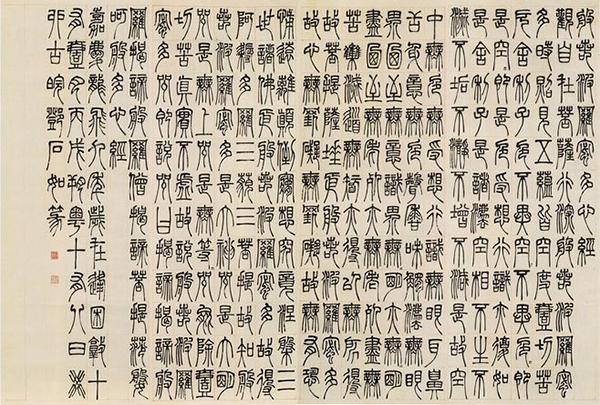 般若波羅蜜多心經
觀自在菩薩行深般若波羅蜜
多時照見五蘊皆空度一切苦
厄舍利子色不異空空不異色色即
是空空即是色受想行識亦復如
是舍利子是諸法空相不生不
滅不垢不淨不增不減是故空
中無色無受想行識無眼耳鼻
舌身意無色聲香味觸法無眼
界乃至無意識界無無明亦無無明
盡乃至無老死亦無老死盡無
苦集滅道無智亦無得以無所得
故菩提薩埵依般若波羅蜜多
故心無罣礙無罣礙故無有恐
怖遠離顛倒夢想究竟涅槃三
世諸佛依般若波羅蜜多故得
阿耨多羅三藐三菩提故知般
若波羅蜜多是大神咒是大明
咒是無上咒是無等等咒能除壹
切苦真實不虛故說般若波羅
蜜多咒即說咒曰揭諦揭諦般
羅揭諦般羅僧揭諦菩提薩婆
呵般若多心經
嘉慶龍飛九年歲在逢困敦十
有壹月丙戌朔粵十有八日癸
卯古皖鄧石如篆